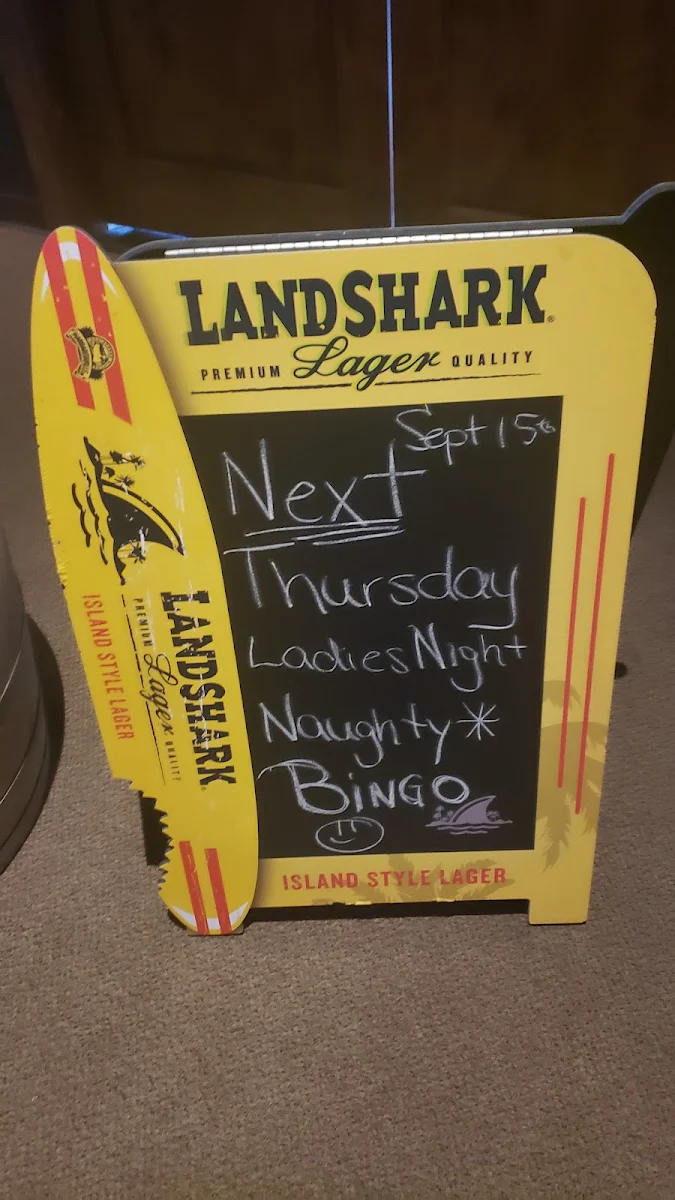 LANDSHARK®
PREMIUM Lager QUALITY
Sept 15th
Next
Thursday
Ladies Night
Naughty*
BINGO
ISLAND STYLE LAGER
LANDSHARK®
PREMIUM Lager QUALITY
ISLAND STYLE LAGER